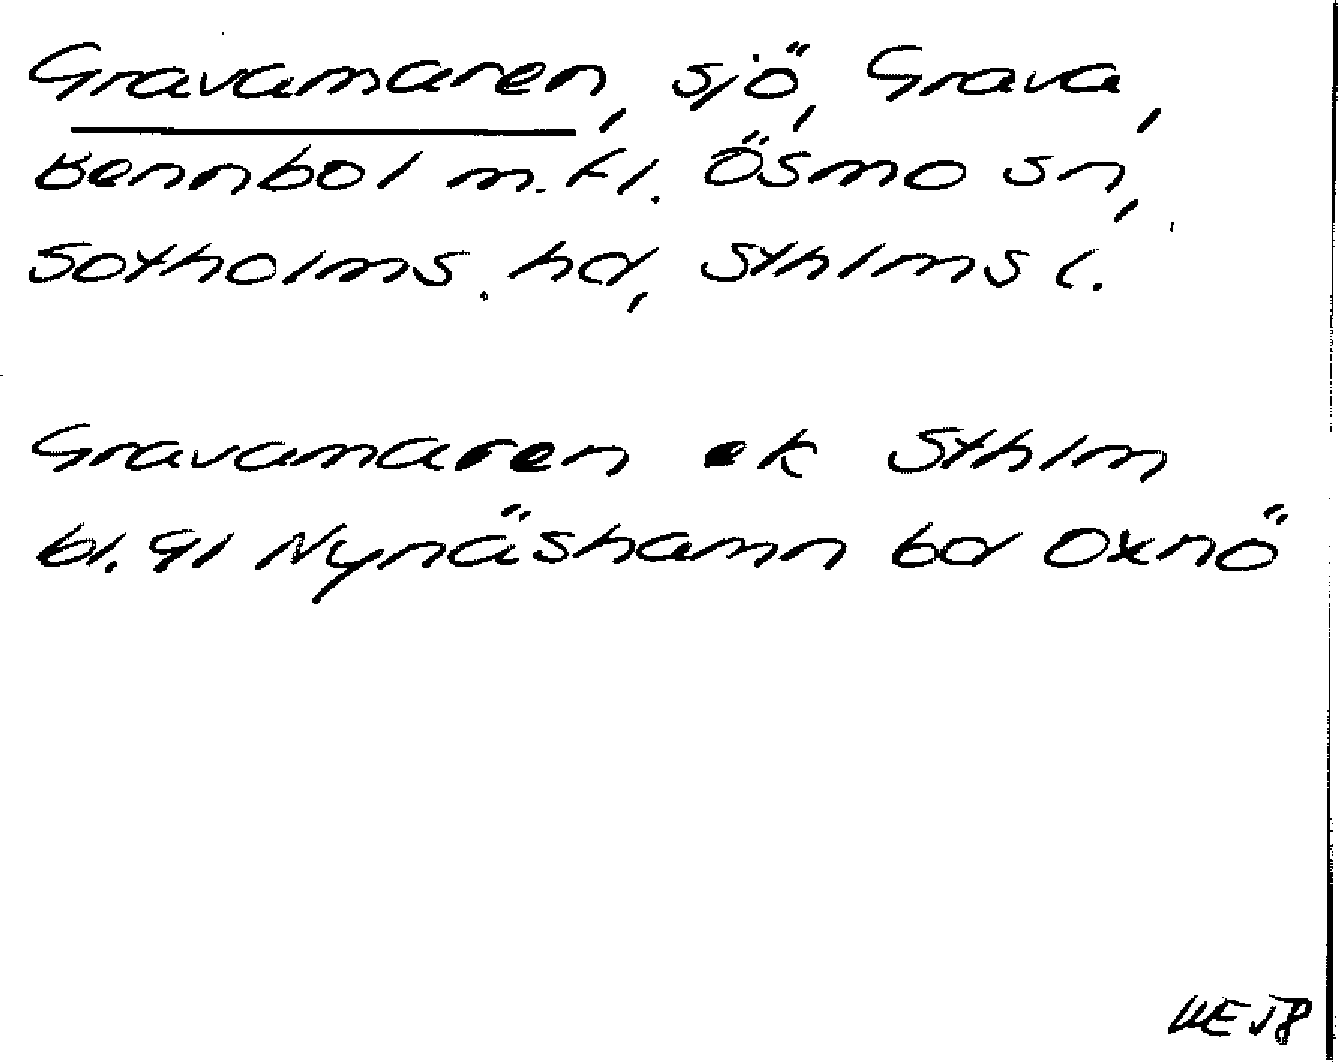 Gravamaren, sjö, Grava,
Bennbol m.fl. Ösmo sn,
Sotholms hd, Sthlms l.
Gravamaren ek Sthlm
bl. 91 Nynäshamn bd Oxnö